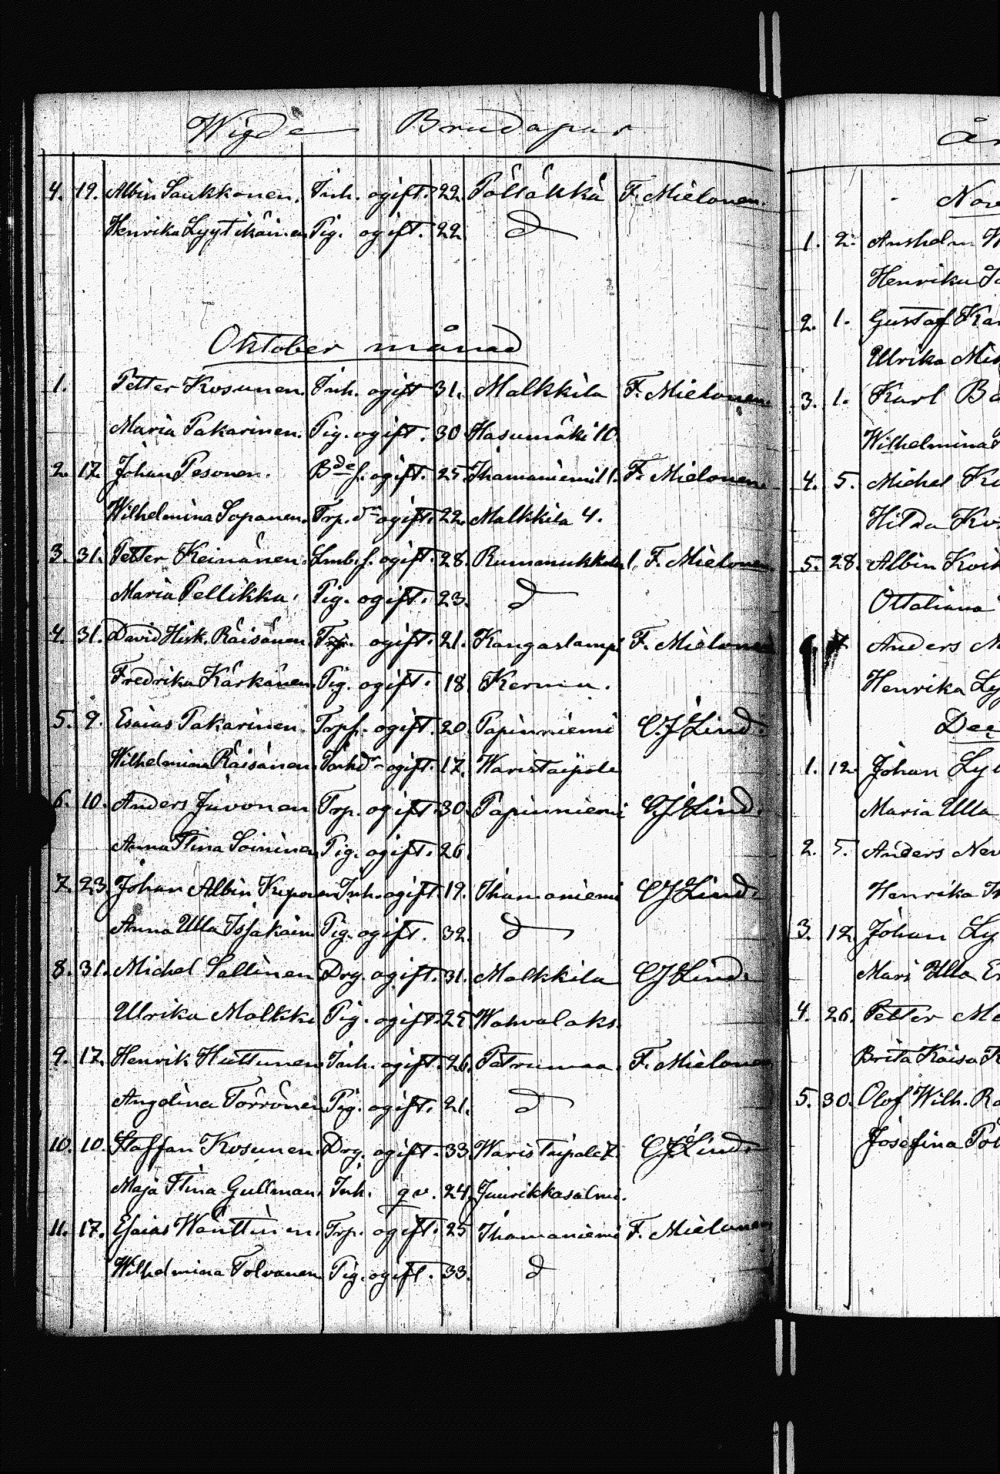 Wigde Brudapar
4. 19. Albin Saukkonen. Inh. ogift. 22. Pölläkkä F. Mielonen.
Henrika Lyytikäinen Pig. ogift. 22. D
Oktober månad
1. Petter Kosunen. Inh. ogift 31. Malkkila F. Mielonen
Maria Pakarinen. Pig. ogift. 30 Hasumäki 10.
2. 17. Johan Pesonen. Bde f. ogift. 25. Ihamaniemi 11. F. Mielonen
Wilhelmina Sopanen. Trp. dr ogift. 22. Malkkila 4.
3. 31. Petter Keinänen. Lmb. f. ogift. 28. Rummukkala 1, F. Mielonen
Maria Pellikka. Pig. ogift. 23. D
4. 31. David Hisk. Räisänen Trp. ogift. 21. Kangaslampi F. Mielonen
Fredrika Kärkänen Pig. ogift. 18 Kerma.
5. 9. Esaias Pakarinen. Trpf. ogift. 20. Papinniemi C. J. Lind.
Wilhelmina Räisänen. Inhdr ogift. 17. Waristaipale
6. 10. Anders Juvonen Trp. ogift. 30. Papinniemi C J Lind.
Anna Stina Soininen Pig. ogift. 26.
7. 23. Johan Albin Kuponen Inh. ogift. 19. Ihamaniemi C J Lind.
Anna Ulla Ijäskäin. Pig. ogift. 32. D
8. 31. Michel Sallinen Drg. ogift. 31. Malkkila C J Lind.
Ulrika Malkki Pig. ogift. 25. Wahvalaks.
9. 17. Henrik Huttunen Inh. ogift. 26. Petrumaa. F. Mielonen
Angelina Törrönen Pig. ogift. 21. D
10. 10. Staffan Kosunen. Drg. ogift. 33. Waristaipale 7. C J Lind.
Maja Stina Gullman. Inh. qv. 24. Juurikkasalmi.
11. 17. Esaias Wänttinen. Trp. ogift. 25 Ihamaniemi F. Mielonen
Wilhelmina Tolvanen Pig. ogift. 33. D
År
Nov
1. 2. Ansholm
Henrika
2. 1. Gustaf
Ulrika
3. 1. Karl
Wilhelmina
4. 5. Michel
Hilda
5. 28. Albin
Ottiliana
Anders
Henrika
Dec
1. 12. Johan
Maria Ulla
2. 5. Anders
Henrika
3. 12. Johan
Mari Ulla
4. 26. Petter
Brita Kaisa
5. 30. Olof Wilh.
Josefina